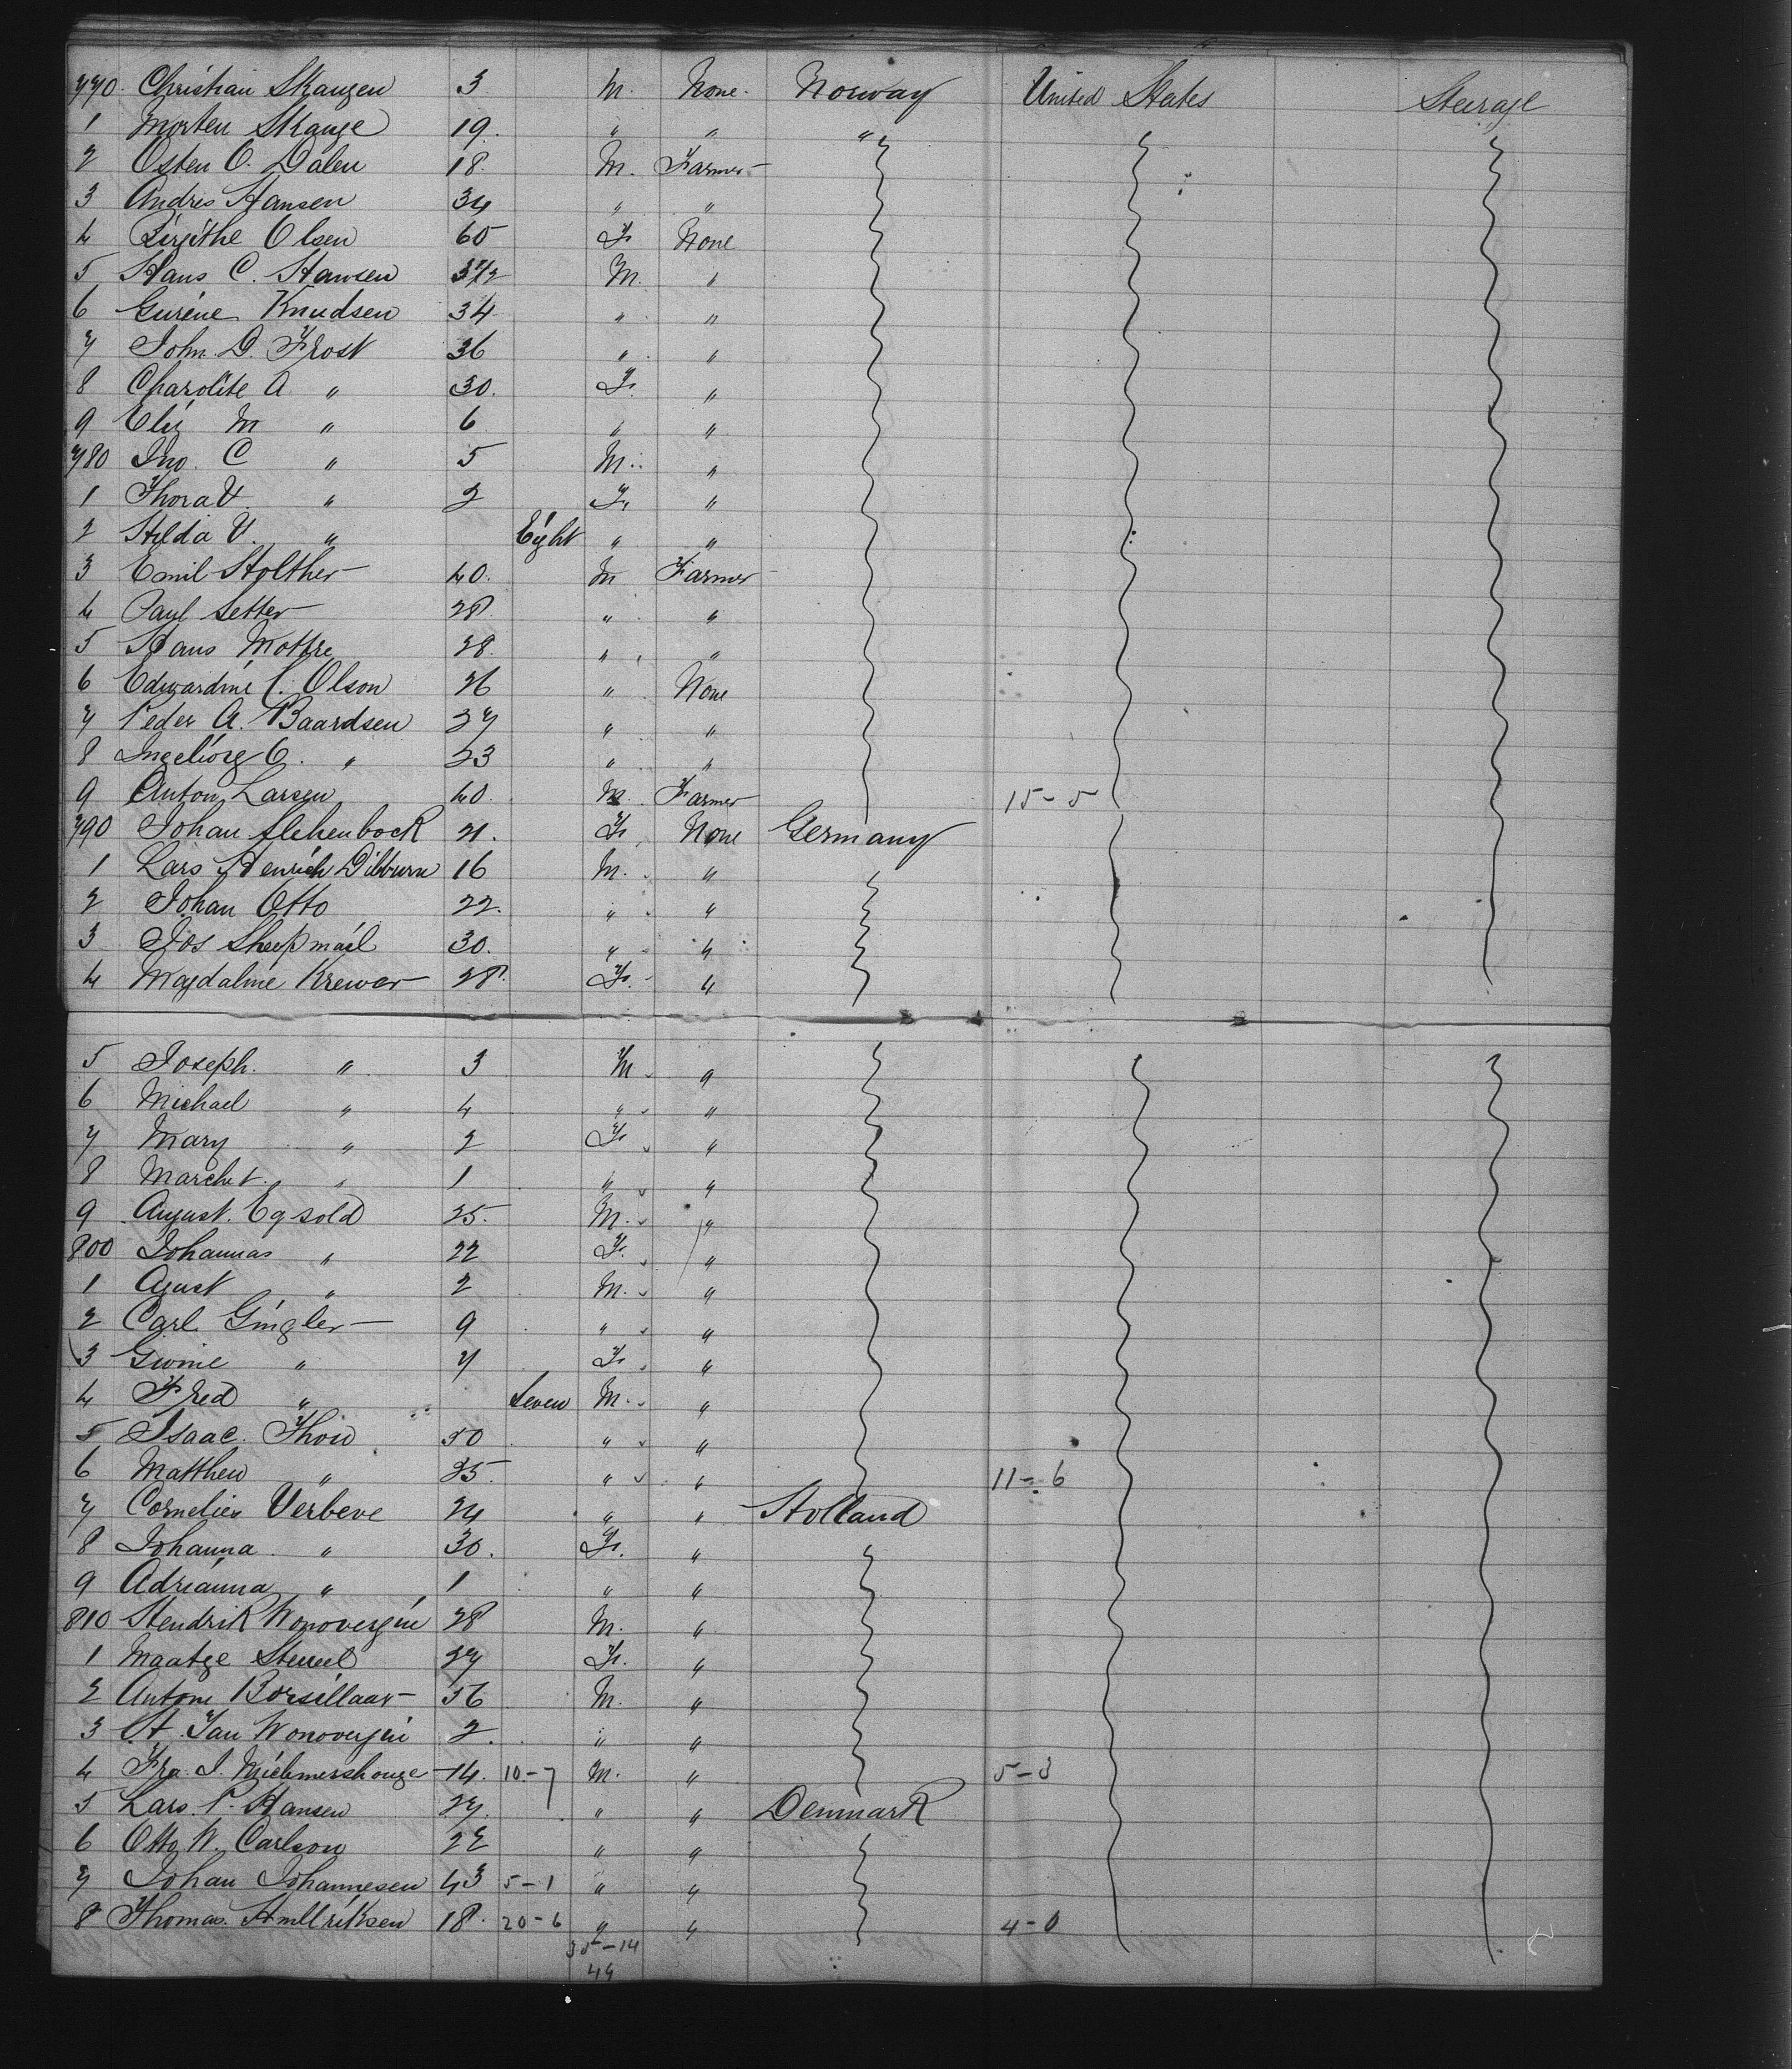 770. Christian Skangen 3 M. None. Norway United States Steerage
1 Morten Skange 19. " " "
2 Osten O. Dalen 18. M. Farmer
3 Andres Hansen 34 " "
4 Birgithe Olsen 65 F. None
5 Hans C. Hansen 3 1/2 M. "
6 Gurene Knudsen 34 " "
7 John D. Frost 36 " "
8 Charolite A " 30. F. "
9 Eliz M " 6 " "
780 Jno. C " 5 M. "
1 Thora V. " 2 F. "
2 Hilda V. " Eight " "
3 Emil Holther 40. M Farmer
4 Paul Setter 28. " "
5 Hans Mothre 28. " "
6 Edwardine C. Olson 26 " None
7 Peder A. Baardsen 27 " "
8 Ingeborg C. " 23 " "
9 Anton Larsen 40. M Farmer 15-5
790 Johan 21. F. None Germany
1 Lars Henrich Dibburn 16 M. "
2 Johan Otto 22. " "
3 Jos Sheepmail 30. " "
4 Magdaline Krewer 28. F. "
5 Joseph. " 3 M. "
6 Michael " 4 " "
7 Mary " 2 F. "
8 Marchet. " 1 " "
9 August. Egsold 25. M. "
800 Johannas " 22 F. "
1 Agust " 2 M. "
2 Carl Gingler 9 " "
3 " 7 F. "
4 Fred " Seven M. "
5 Isaac. Thow 50 " "
6 Matthew " 25. " " 11-6
7 Cornelies Verbeve 24 " " Holland
8 Johanna. " 30. F. "
9 Adrianna " 1 " "
810 Hendrik Wonovergin 28 M. "
1 Maatge 27 F. "
2 Antone Borsillaar 56 M. "
3 Jan Wonovergin 2. " "
4 Fra. J. Michmershouge 14. 10-7 M. " 5-3
5 Lars. P. Hansen 27. " " Denmark
6 Otto W. Carlson 22 " "
7 Johan Johannesen 43 5-1 " "
8 Thomas. 18. 20-6 " " 4-0
35-14
49